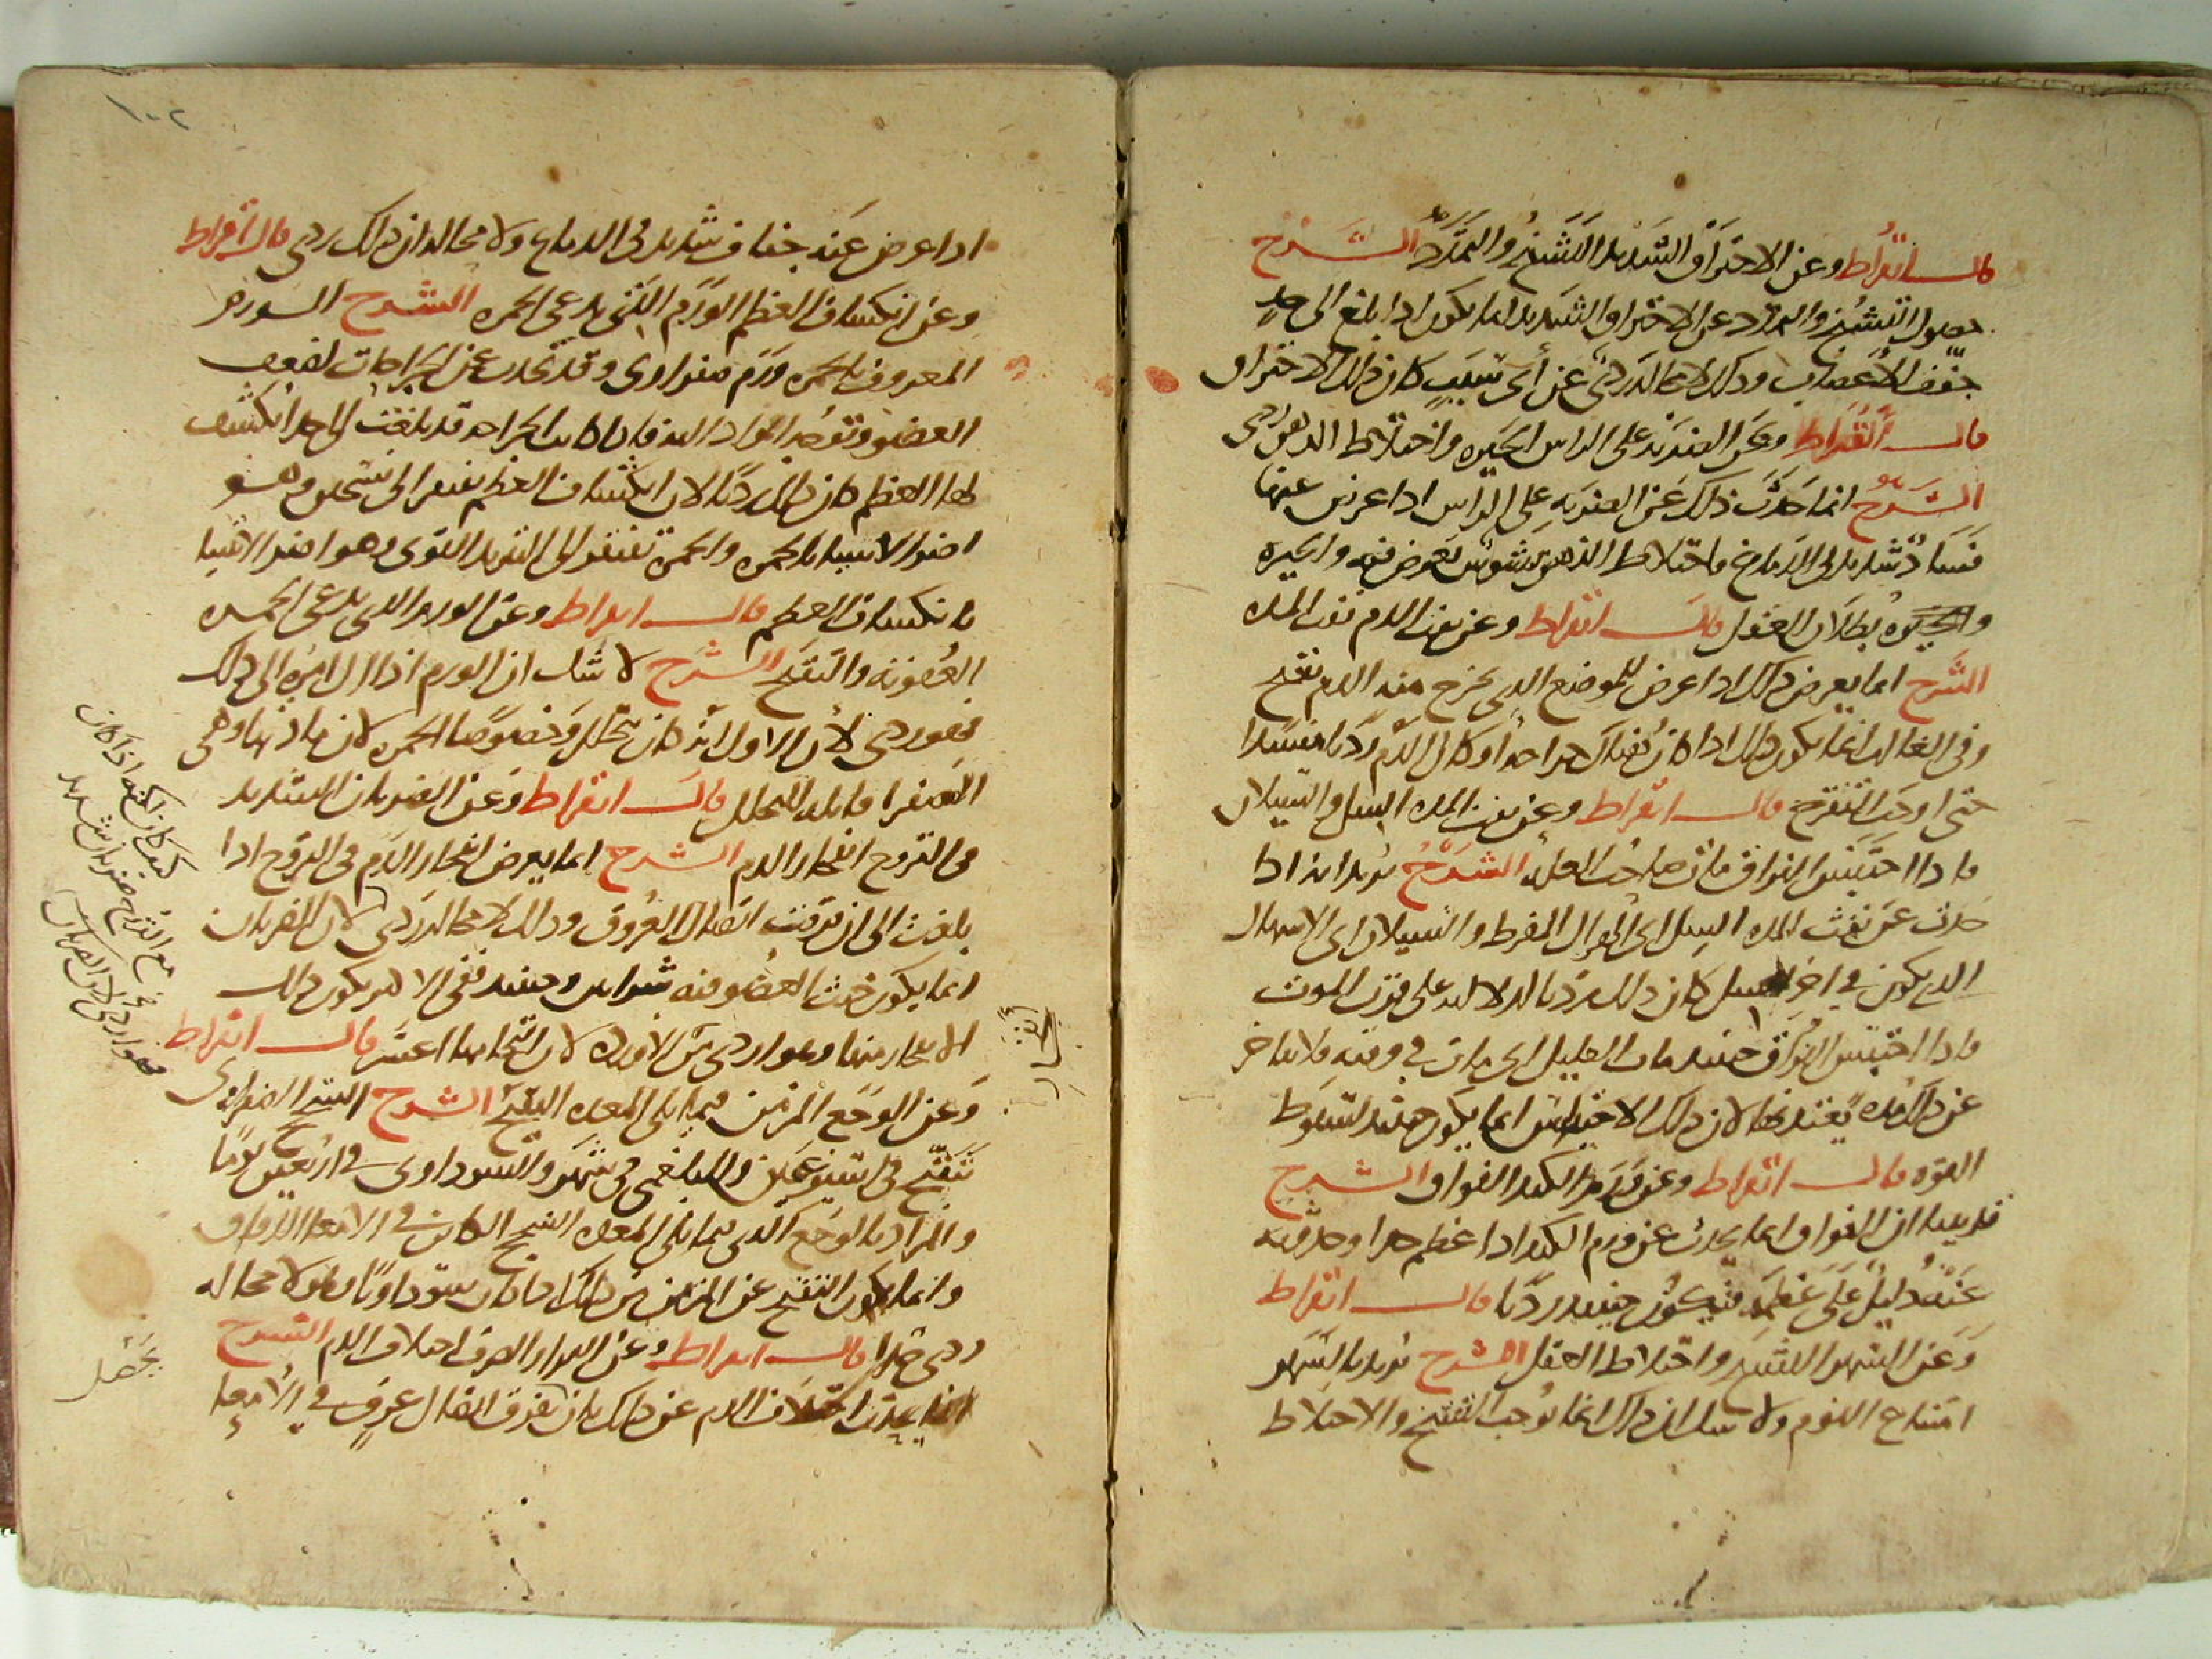 قال ابقراط وعن الاحتراق الشديد التشنج والتمدد الشرح
حصول التشنج والتمدد عن الاحتراق الشديد انما يكون اذا بلغ الى حد
جفف الاعصاب وذلك لا محالة ردئ عن أي سبب كان ذلك الاحتراق
قال أبقراط وعن الضربة على الراس الحيره واختلاط الذهن ردى
الشرح انما حدث ذلك عن الضربه على الراس اذا عرض عنها
فساد شديد في الدماغ واختلاط الذهن تشوش يعرض فيه والحيره
والحيره بطلان العقل قال ابقراط وعن نفث الدم نفث المده
الشرح انما يعرض ذلك اذا عرض للموضع الذي يخرج منه الدم تقيح
وفى الغالب انما يكون ذلك اذا كان هناك جراحه او كان الدم رديا مفسدا
حتى اوجب التقرح قال ابقراط وعن نفث المده السل والسيلان
فاذا احتبس البزاق مات صاحب العله الشرح يريد انه اذا
حدث عن نفث المده السل اى الهزال المفرط والسيلان اى الاسهال
الذى يكون في اخر السل كان ذلك رديا لدلالته على قرب الموت
فاذا احتبس البزاق حينئذ مات العليل اى مات في وقته ولا يتاخر
عن ذلك مده يعتد بها لان ذلك الاحتباس انما يكون حينئذ لسقوط
القوه قال ابقراط وعن ورم الكبد الفواق الشرح
قد بينا ان الفواق انما يحدث عن ورم الكبد اذا عظم جدا وحدوثه
عنه دليل على عظمه فيكون حينئذ رديا قال ابقراط
وعن السهر التشنج واختلاط العقل الشرح يريد بالسهر
امتناع النوم ولا شك ان ذلك انما يوجب التشنج والاختلاط
١٠٢
اذا عرض عنه جفاف شديد فى الدماغ ولا محالة ان ذلك ردى قال ابقراط
وعن انكشاف العظم الورم الذي يدعى الحمره الشرح الورم
المعروف بالحمره ورم صفراوى وقد يحدث عن الجراحات لضعف
العضو وتوجه المواد اليه فاذا كانت الجراحه قد بلغت الى حد انكشف
لها العظم كان ذلك رديا لان انكشاف العظم يفتقر الى تسخين وهو
اضر الاشيا بالحمره والحمرة تفتقر الى التبريد القوى وهو اضر الاشيا
بانكشاف العظم قال ابقراط وعن الورم الذى يدعى الحمره
العفونه والتقيح الشرح لا شك ان الورم اذا ال امره الى ذلك
فهو ردى لان الاولى انه كان يتحلل وخصوصا الحمره لان مادتها وهى
الصفرا قابله للتحلل قال ابقراط وعن الضربان الشديد
فى القروح انفجار الدم الشرح انما يعرض انفجار الدم فى القروح اذا
بلغت الى ان فرقت اتصال العروق وذلك لا محاله ردى لان الضربان
انما يكون حيث العضو فيه شرايين وحينئذ ففى الاكثر يكون ذلك
الانفجار منها وهو اردى من الاورده لان التحامها اعسر قال ابقراط
وعن الوجع المزمن فيما يلى المعده التقيح الشرح التقيح الصفراوى
يتقيح فى اسبوعين والبلغمى فى شهر والسوداوى في اربعين يوما
والمراد بالوجع الذى فيما يلى المعده التقيح الكائن في الامعا الدقاق
وانما يكون التقيح عن المزمن من ذلك اذا كان سوداويا وهو لا محاله
ردى جدا قال ابقراط وعن البراز الصرف اختلاف الدم الشرح
انما يحدث اختلاف الدم عن ذلك بان تفرق اتصال عروق في الامعا